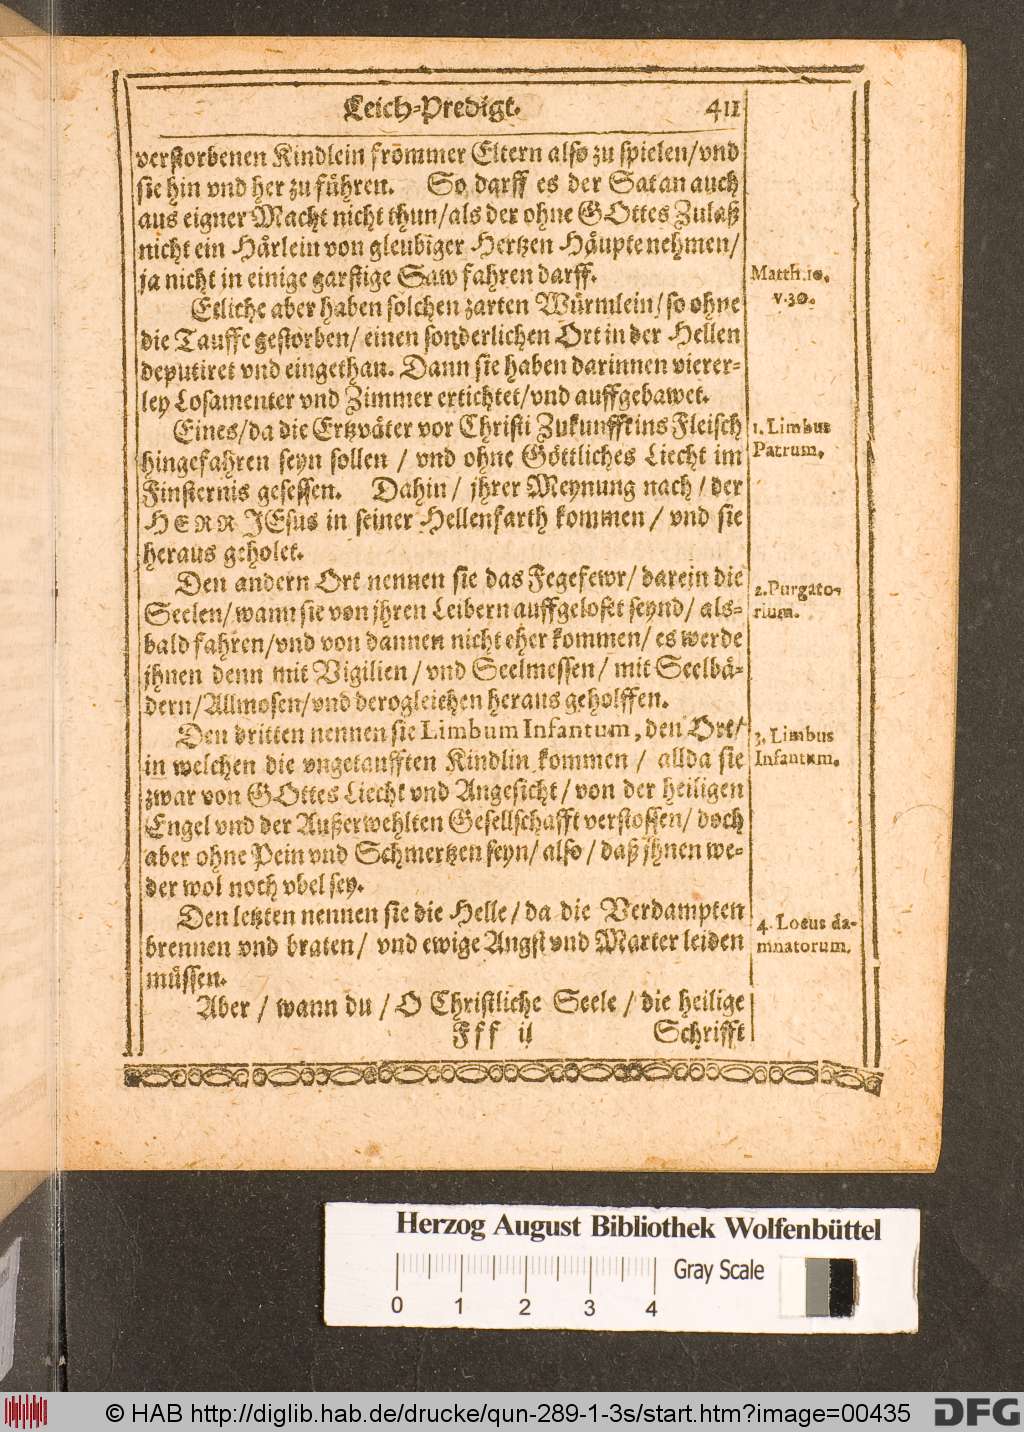 Leich-Predigt. 411
verstorbenen Kindlein frommer Eltern also zu spielen/vnd
sie hin vnd her zu führen. So darff es der Satan auch
aus eigner Macht nicht thun/als der ohne GOttes Zulaß
nicht ein Härlein von gleubiger Hertzen Häupte nehmen/
ja nicht in einige garstige Saw fahren darff.
Matth.10.
v.30.
Etliche aber haben solchen zarten Würmlein/so ohne
die Tauffe gestorben/einen sonderlichen Ort in der Hellen
deputiret vnd eingethan. Dann sie haben darinnen vierer-
ley Losamenter vnd Zimmer ertichtet/vnd auffgebawet.
Eines/da die Ertzväter vor Christi Zukunfft ins Fleisch
1. Limbus
Patrum.
hingefahren seyn sollen / vnd ohne Göttliches Liecht im
Finsternis gesessen. Dahin / jhrer Meynung nach / der
HERR JEsus in seiner Hellenfarth kommen / vnd sie
heraus geholet.
Den andern Ort nennen sie das Fegefewr/ darein die
2.Purgato-
rium.
Seelen/wann sie von jhren Leibern auffgelöset seynd/ als-
bald fahren/vnd von dannen nicht eher kommen/ es werde
jhnen denn mit Vigilien / vnd Seelmessen / mit Seelbä-
dern/Allmosen/vnd derogleichen heraus geholffen.
Den dritten nennen sie Limbum Infantum, den Ort/
3. Limbus
Infantum.
in welchen die vngetaufften Kindlin kommen / allda sie
zwar von GOttes Liecht vnd Angesicht / von der heiligen
Engel vnd der Außerwehlten Gesellschafft verstossen/ doch
aber ohne Pein vnd Schmertzen seyn/ also / daß jhnen we-
der wol noch vbel sey.
Den letzten nennen sie die Helle / da die Verdampten
4. Locus da-
mnatorum.
brennen vnd braten/ vnd ewige Angst vnd Marter leiden
müssen.
Aber / wann du / O Christliche Seele / die heilige
Fff ij Schrifft
Herzog August Bibliothek Wolfenbüttel
Gray Scale
0 1 2 3 4
© HAB http://diglib.hab.de/drucke/qun-289-1-3s/start.htm?image=00435
DFG